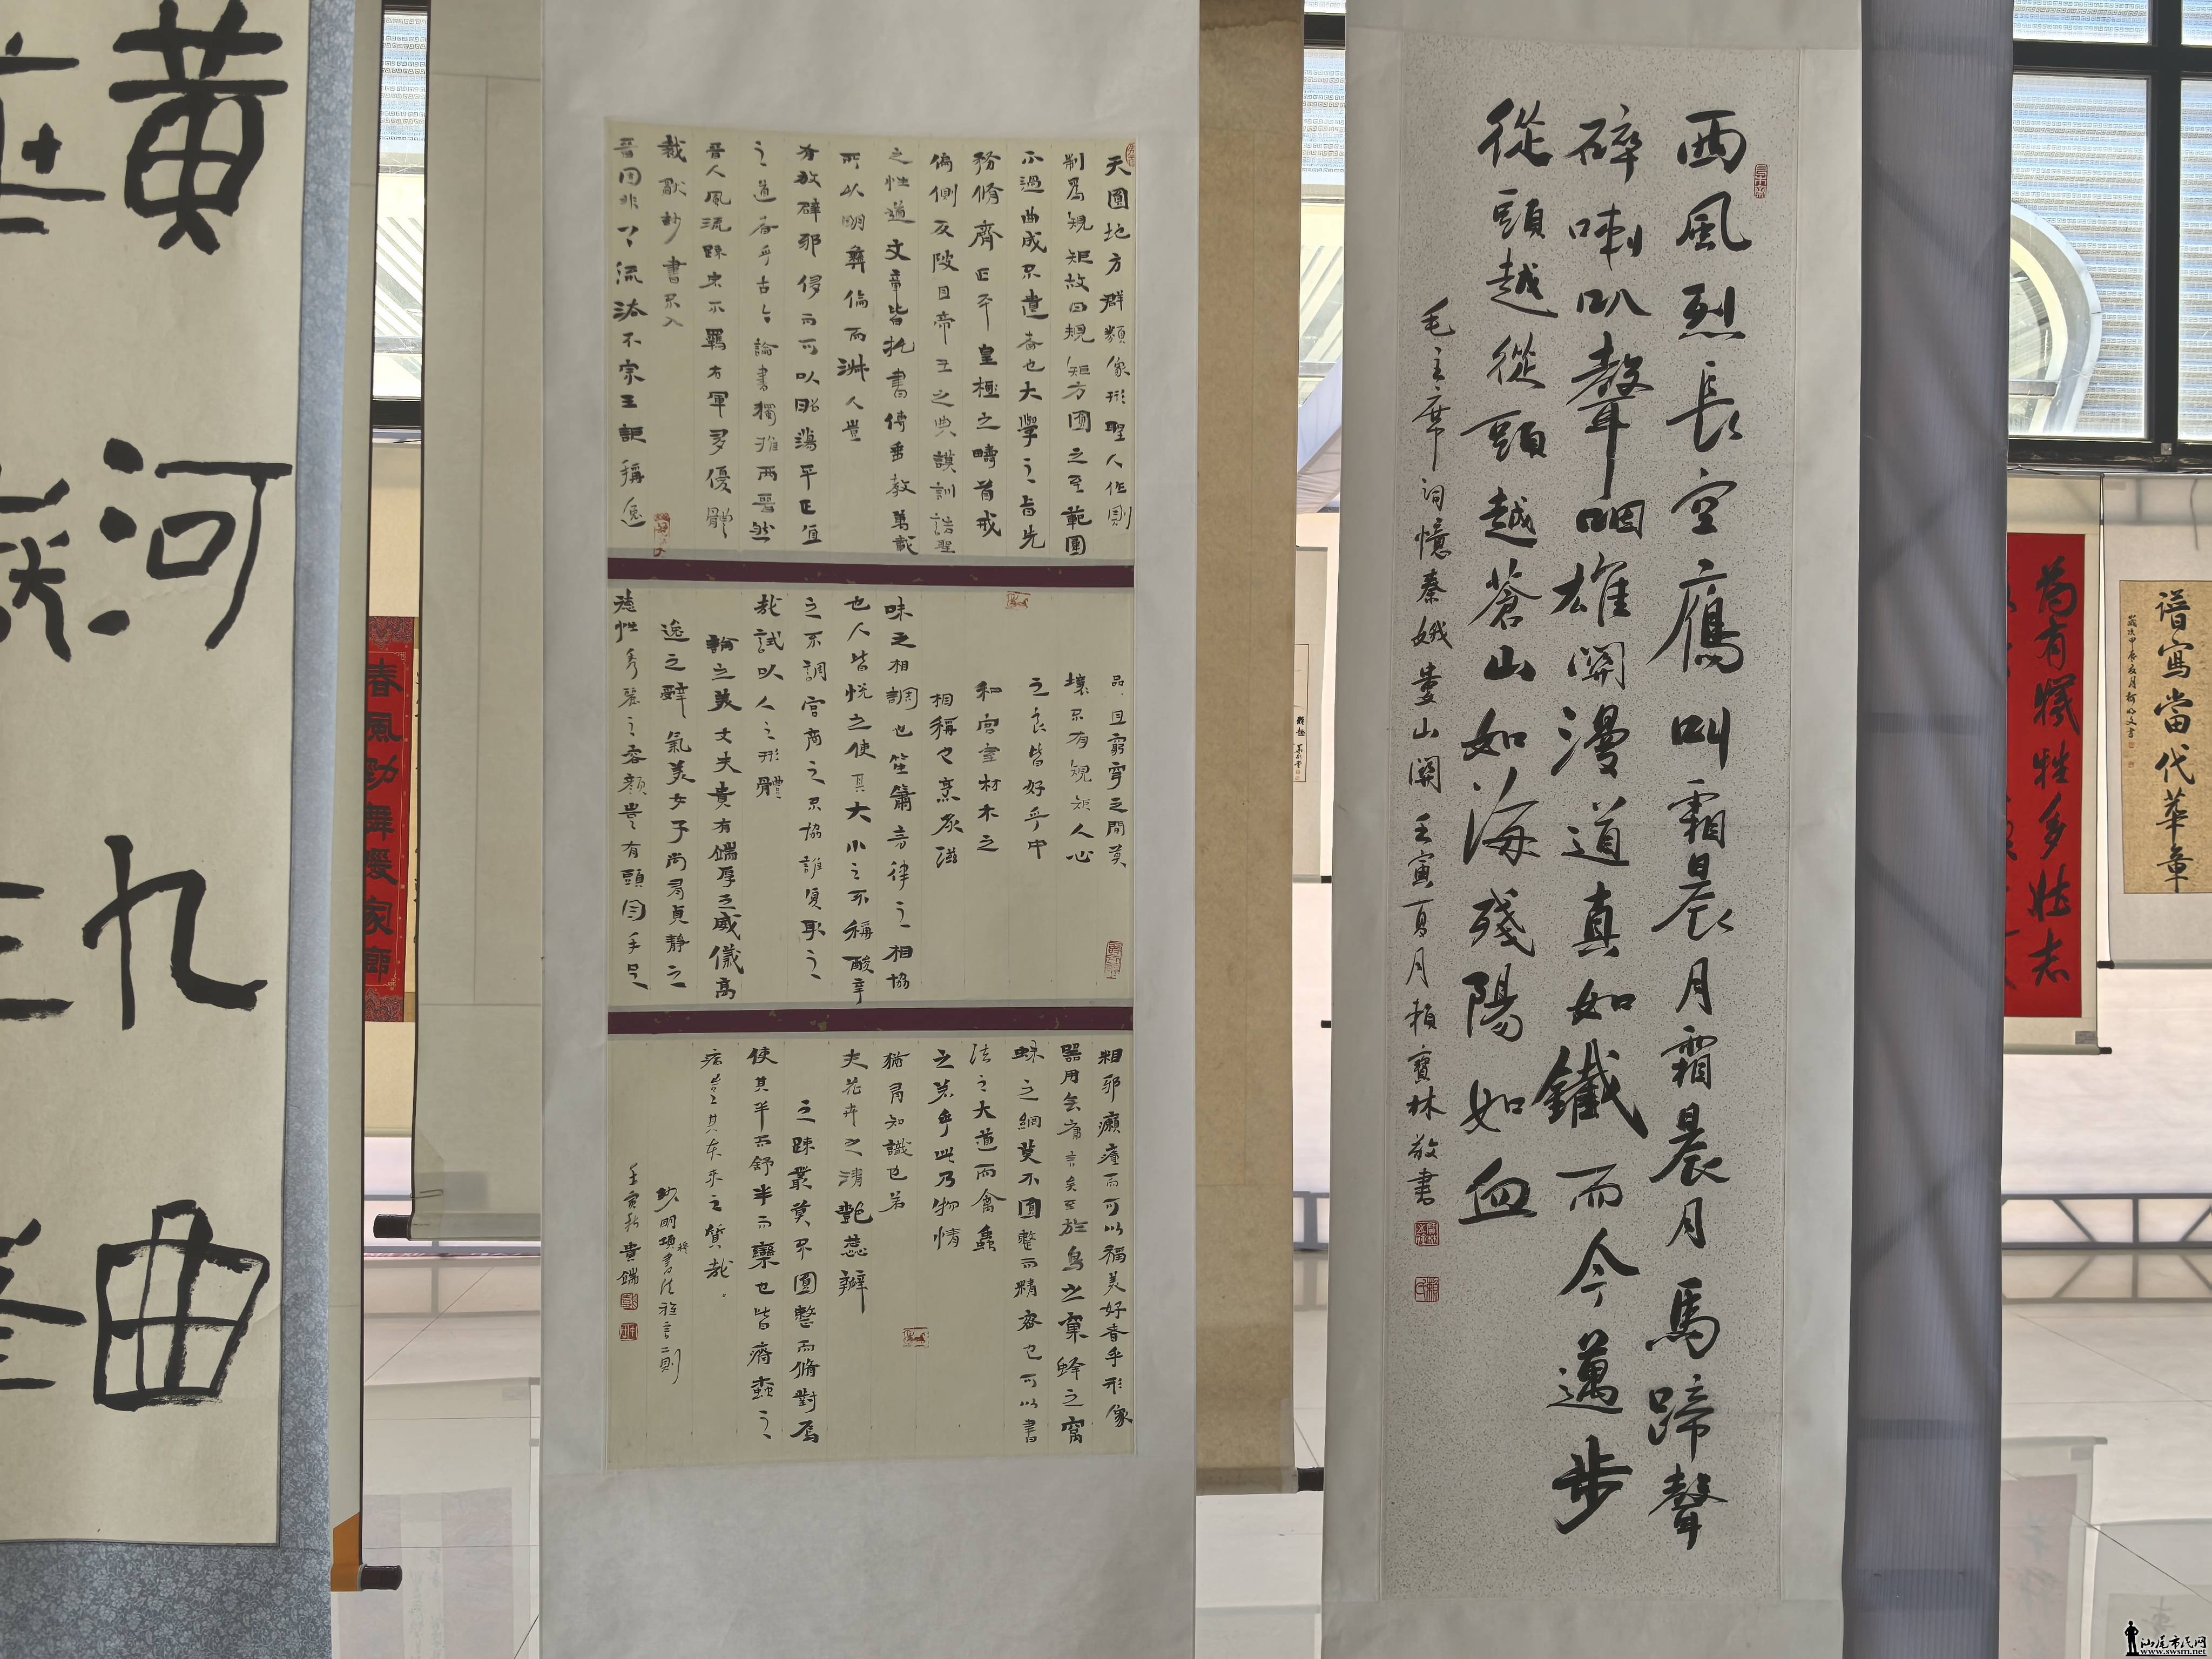 西風烈長空鴈叫霜晨月霜晨月馬蹄聲
碎喇叭聲咽雄關漫道真如鐵而今邁步
從頭越從頭越蒼山如海殘陽如血
毛主席詞憶秦娥婁山關 壬寅夏月賴寶林敬書
天圓地方群類像形聖人作則
制為規矩故曰規矩方圓之至範圍
不過曲成不遺者也大學之旨先
務脩齊正平皇極之疇首戒
偏側反陂且帝王之典謨訓誥聖
之性道文章皆托書傳垂教萬載
所以明彝倫而淑人豈
有放辟邪侈而可以昭蕩平正直
之道者乎古今論書獨推兩晉然
晉人風流疎宕不羈右軍多優體
裁獻抄書不入
晉固非了流派不宗王詎稱逸
品且窮穹之間莫
壤不有規矩人心
之良皆好乎中
和宮室材木之
相稱也烹炙滋
味之相調也笙簫音律之相協
也人皆悅之使其大小之不稱酸辛
之不調宮商之不協誰復取之
哉試以人之形體
論之美丈夫貴有端厚之威儀高
逸之辭氣美女子尚有貞靜之
德性秀麗之容顏豈有頭目手足
粗邪癩瘇而可以稱美好者乎形像
器用無庸言矣至於鳥之窠蜂之窩
蛛之網莫不圓整而精密也可以書
法之大道而禽蟲
之若乎此乃物情
猶有知識也若
夫花卉之清艷蕊瓣
之疎叢莫不圓整而脩對焉
使其半而舒半而欒也皆瘠蠹之
病豈其本來之質哉。
抄明項穆書法雅言二則
壬寅秋貴端
黃河九曲
春風勁舞暖家鄉
為有犧牲多壯志
譜寫當代華章
汕尾市民网
www.swsm.net